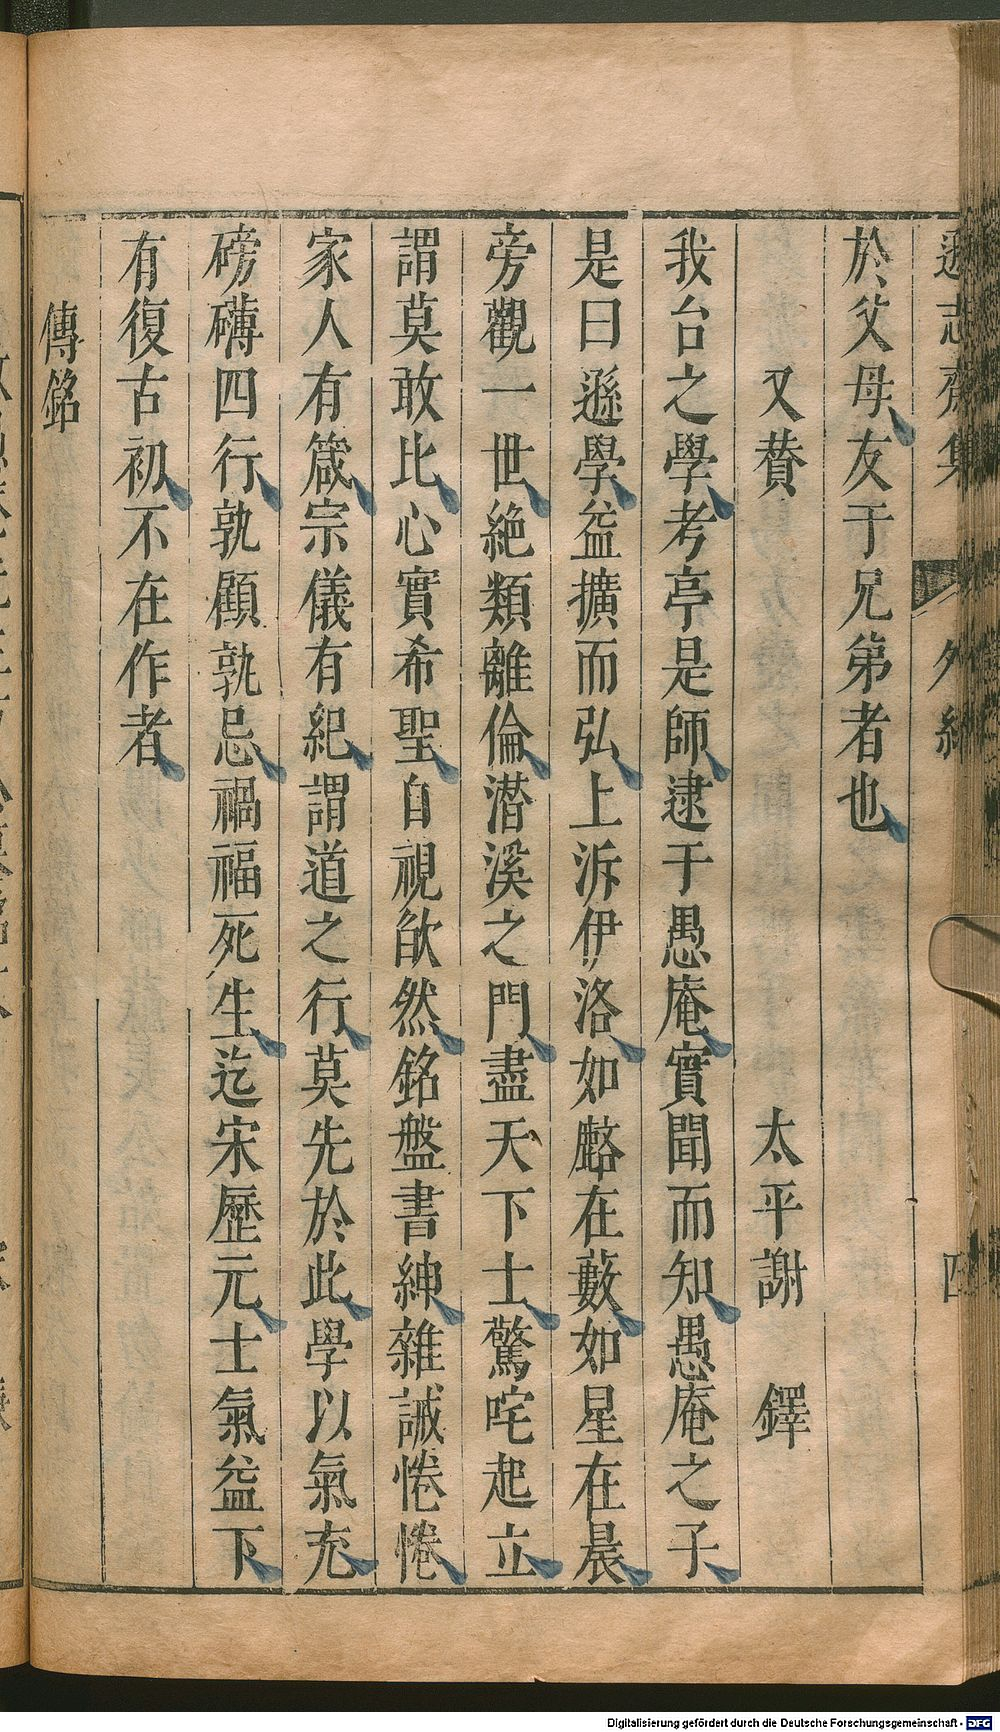 遜志齋集 外紀 四
於父母友于兄弟者也
又賛 太平謝 鐸
我台之學考亭是師逮于愚庵實聞而知愚庵之子
是曰遜學益擴而弘上泝伊洛如麟在藪如星在晨
旁觀一世絶類離倫潜溪之門盡天下士驚咤起立
謂莫敢比心實希聖自視欿然銘盤書紳雜誡惓惓
家人有箴宗儀有紀謂道之行莫先於此學以氣充
磅礴四行孰顧孰忌禍福死生迄宋歷元士氣益下
有復古初不在作者
傳銘
Digitalisierung gefördert durch die Deutsche Forschungsgemeinschaft - DFG